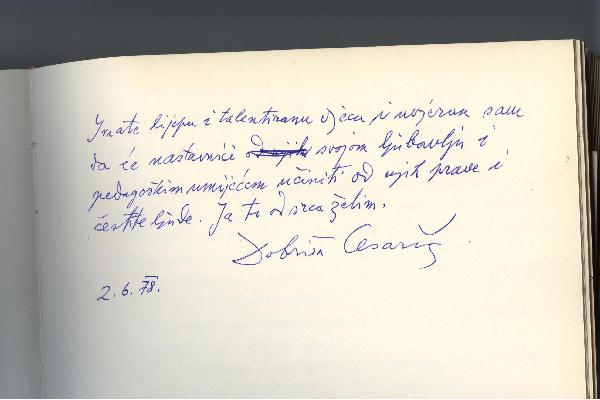 Imate lijepu i talentiranu djecu i uvjeren sam
da će nastavnici od njih svojom ljubavlju i
pedagoškim umijećem učiniti od njih prave i
čestite ljude. Ja to od srca želim.
Dobriša Cesarić
2. 6. 78.